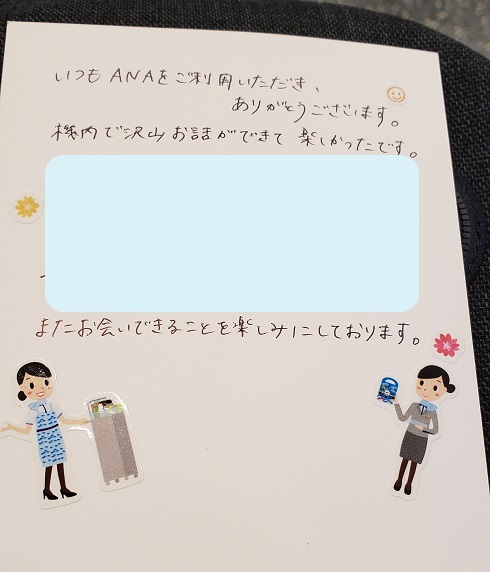 いつもANAをご利用いただき、
ありがとうございます。
機内で沢山お話ができて 楽しかったです。
またお会いできることを楽しみにしております。